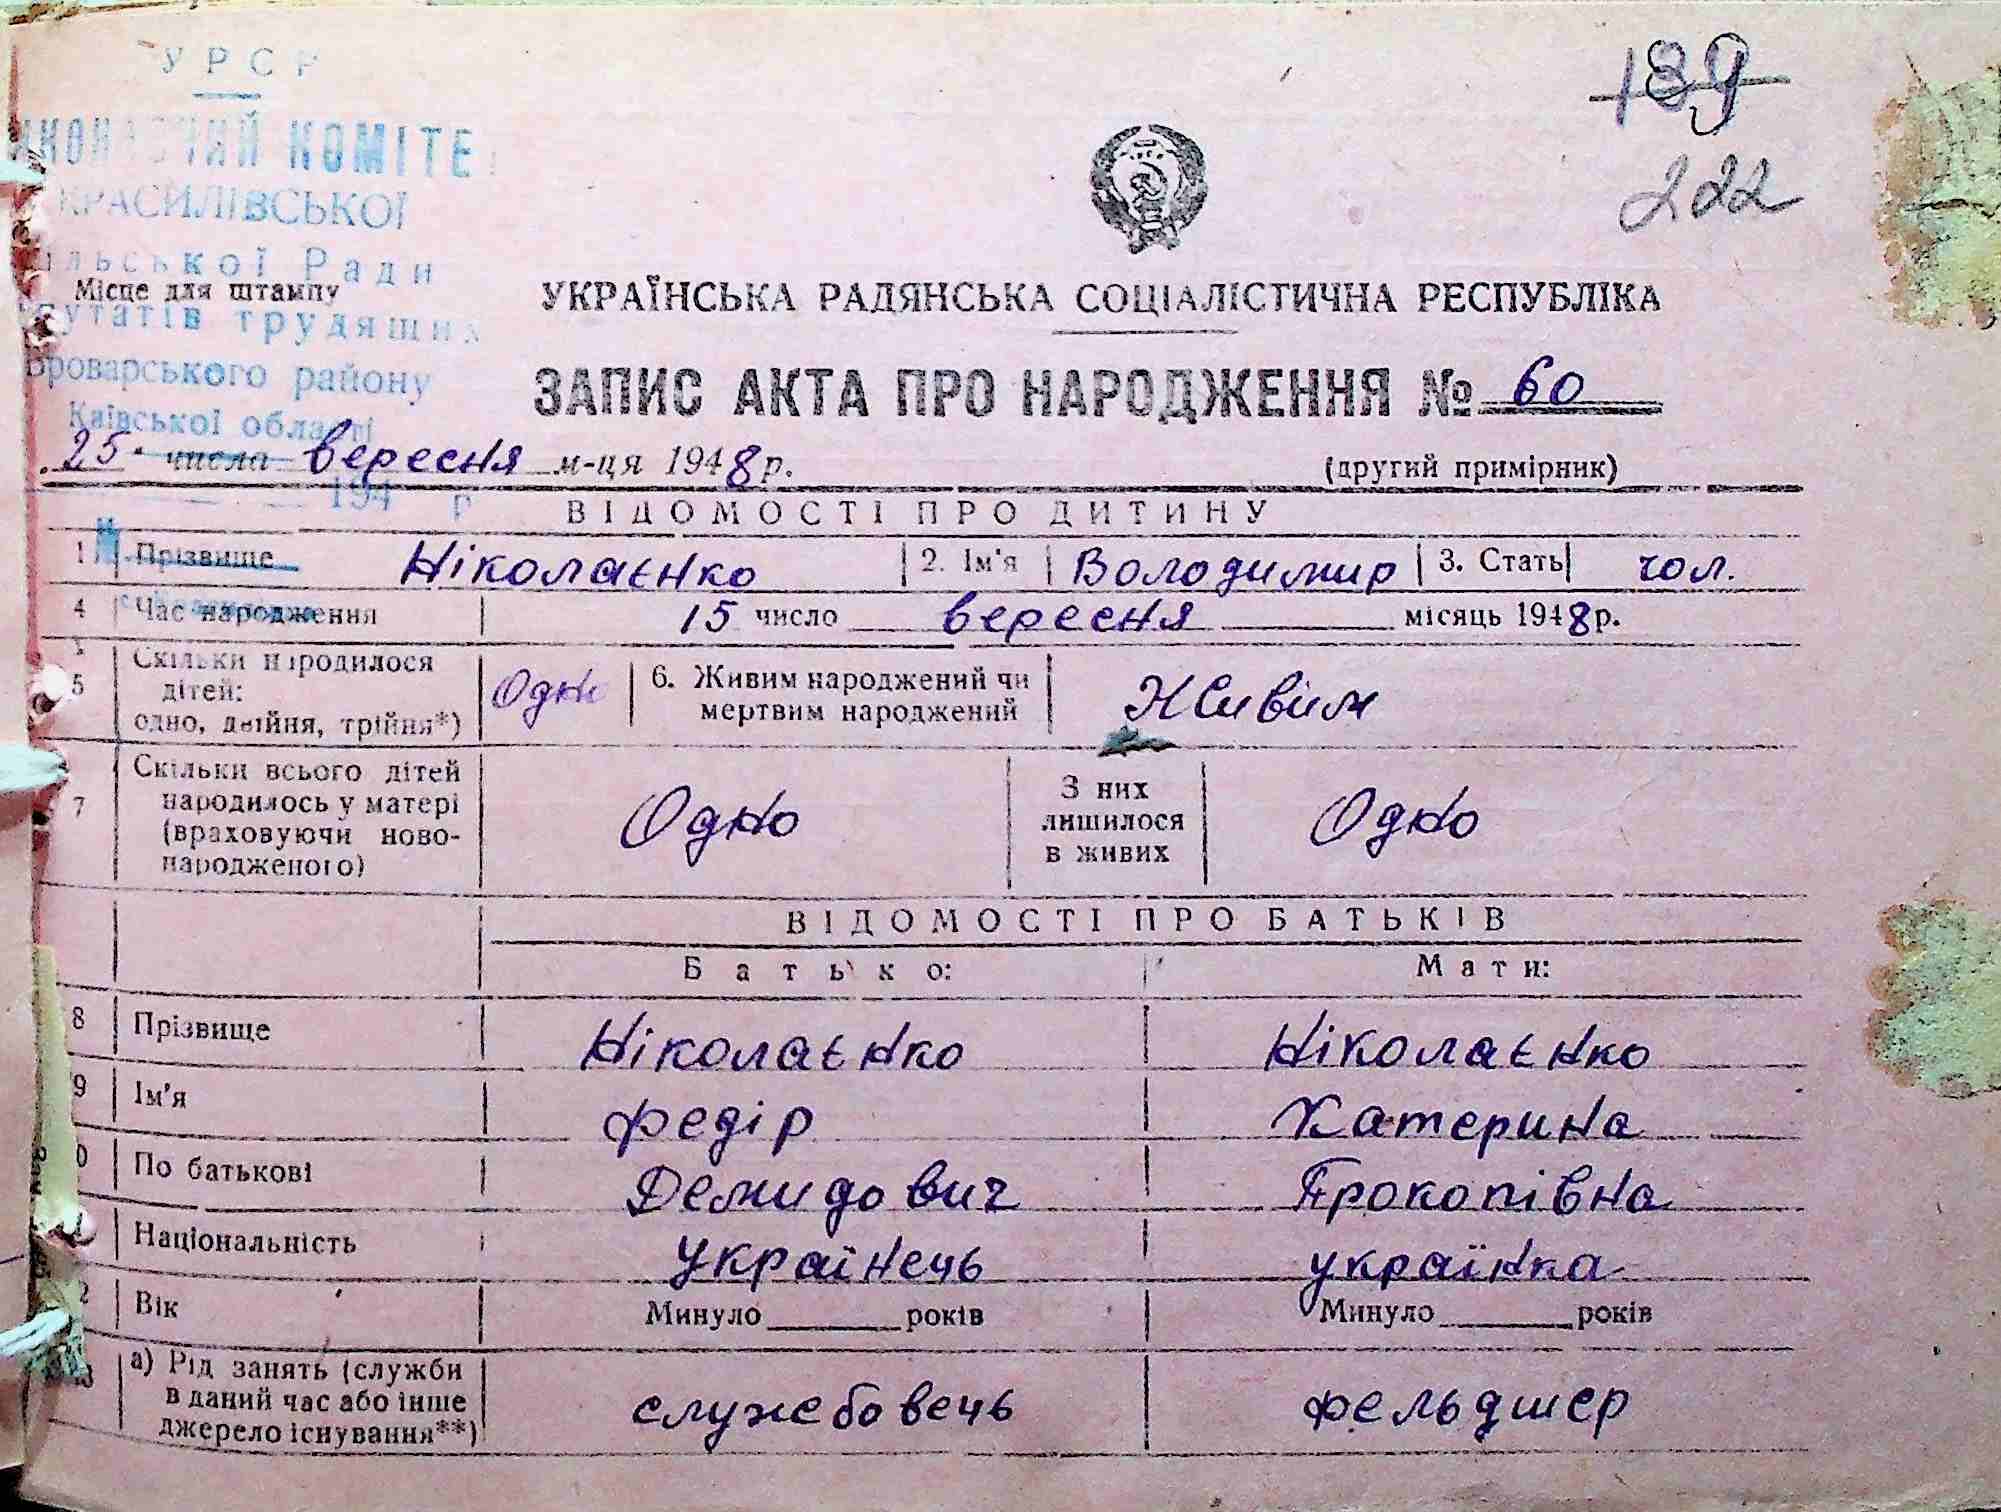 УРСР
ВИКОНАВЧИЙ КОМІТЕТ
КРАСИЛІВСЬКОЇ
сільської Ради
Місце для штампу
депутатів трудящих
Броварського району
Київської області
194 р
139
222
УКРАЇНСЬКА РАДЯНСЬКА СОЦІАЛІСТИЧНА РЕСПУБЛІКА
ЗАПИС АКТА ПРО НАРОДЖЕННЯ № 60
25 числа вересня м-ця 1948 р. (другий примірник)
ВІДОМОСТІ ПРО ДИТИНУ
1 Прізвище Ніколаєнко 2. Ім'я Володимир 3. Стать чол.
4 Час народження 15 число вересня місяць 1948 р.
5 Скільки народилося дітей: одно, двійня, трійня*) Одно 6. Живим народжений чи мертвим народжений Живим
7 Скільки всього дітей народилось у матері (враховуючи ново-народженого) Одно З них лишилося в живих Одно
ВІДОМОСТІ ПРО БАТЬКІВ
Батько: Мати:
8 Прізвище Ніколаєнко Ніколаєнко
9 Ім'я Федір Катерина
0 По батькові Демидович Прокопівна
1 Національність Українець українка
2 Вік Минуло років Минуло років
3 а) Рід занять (служби в даний час або інше джерело існування**) службовець фельдшер